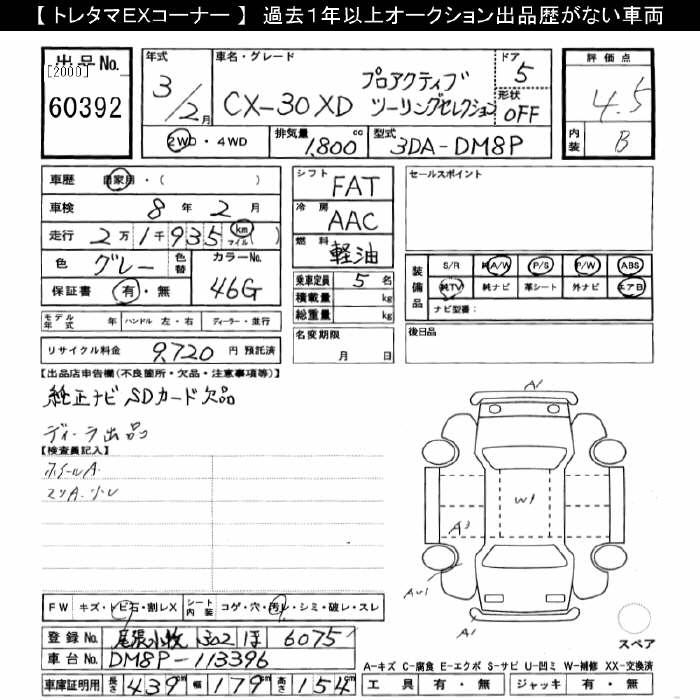 【 トレタマEXコーナー 】 過去1年以上オークション出品歴がない車両
出品No.
[2000]
60392
年式
3/2月
車名・グレード
CX-30 XD
プロアクティブ
ツーリングセレクション
ドア
5
形状
OFF
2WD・4WD
排気量 1,800 cc
型式 3DA-DM8P
評価点
4.5
内装 B
車歴 自家用・( )
車検 8年 2月
走行 2万1千935 km マイル ( )
色 グレー
色替
カラーNo.
46G
保証書 有・無
モデル年式 年 ハンドル 左・右 ディーラー・並行
リサイクル料金 9,720 円 預託済
シフト FAT
冷房 AAC
燃料 軽油
乗車定員 5 名
積載量 kg
総重量 kg
名変期限
月 日
セールスポイント
装備品
S/R 純A/W P/S P/W ABS
純TV 純ナビ 革シート 外ナビ エアB
ナビ型番:
後日品
【出品店申告欄(不良箇所・欠品・注意事項等)】
純正ナビSDカード欠品
ディーラ出品
【検査員記入】
ホイールA.
FW キズ・トビ石・割レX
シート内装 コゲ・穴・汚レ・シミ・破レ・スレ
登録No. 尾張小牧 302 ほ 6075
車台No. DM8P-113396
車庫証明用 長さ 439 cm 幅 179 cm 高さ 154 cm
A1
W1
A3
A1
スペア
A-キズ C-腐食 E-エクボ S-サビ U-凹ミ W-補修 XX-交換済
工具 有・無 ジャッキ 有・無